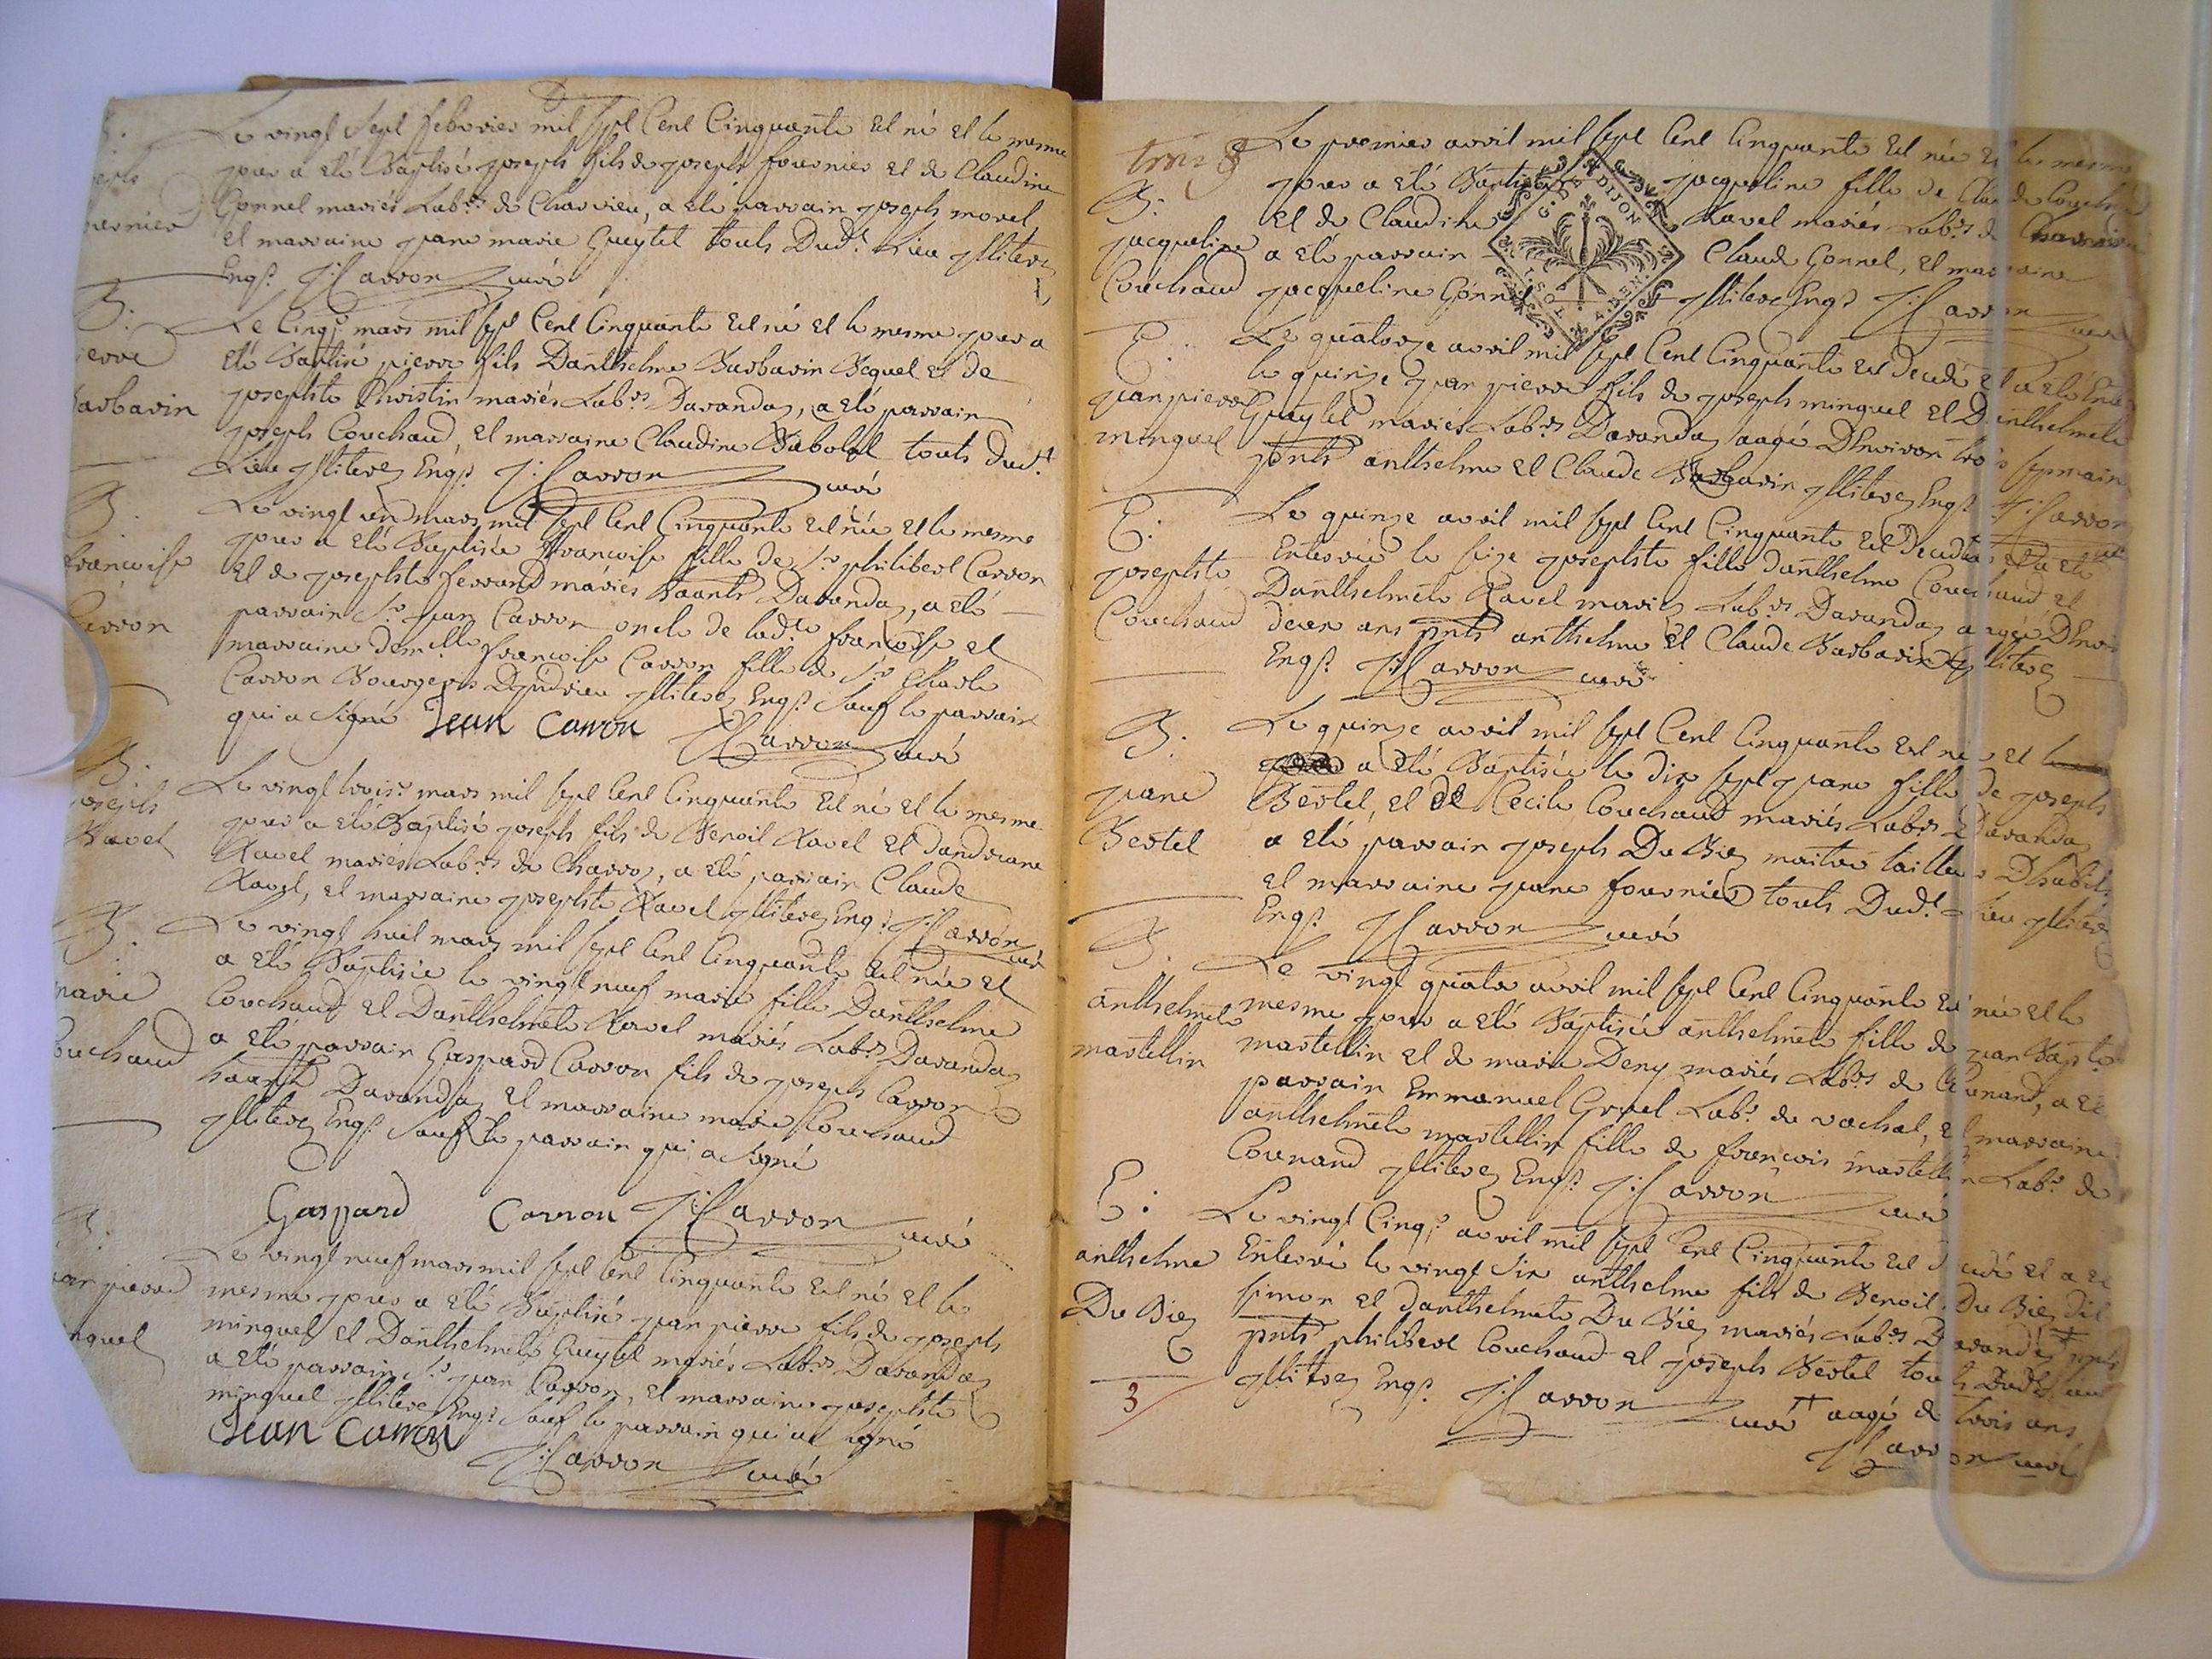 Le vingt sept febvrier mil sept Cent Cinquante Est né et le mesme
jour a Eté Baptisé joseph fils de joseph fournier et de Claudine
Gonnel mariés Lab.rs de Charvieu, a eté parrain joseph morel
et marraine jeane marie Gueytet touts Dud.t Lieu illiteré
Enq.s J: Carron curé
B:
ierre
Barbarin
Le Cinq.e mars mil sept Cent Cinquante Est né et le mesme jour a
Eté Baptisé pierre fils Danthelme Barbarin Bequet et de
josephte Christin mariés Lab.rs Darandaz, a eté parrain
joseph Couchaud, et marraine Claudine Sabolat touts dud.t
Lieu illiterez Enq.s J: Carron curé
B.
francoise
Carron
Le vingt un mars mil sept Cent Cinquante Est née et le mesme
jour a Eté Baptisée francoise fille de S.r philibert Carron
et de josephte ferrand mariés haants Darandaz, a eté
parrain S.r jean Carron oncle de lad.te francoise et
marraine dem.elle francoise Carron fille de S.r Charle
Carron Bourgeois illiterez Enq.s Sauf le parrain
qui a signé Jean Carron J Carron curé
B.
joseph
Ravet
Le vingt trois.e mars mil sept Cent Cinquante Est né et le mesme
jour a eté Baptisé joseph fils de Benoit Ravet et dandreane
Ravet mariés Lab.rs de Charroz, a eté parrain Claude
Ravet, et marraine josephte Ravet illiterez Enq.s J: Carron curé
B.
marie
Couchaud
Le vingt huit mars mil sept Cent Cinquante Est née et
a Eté Baptisée le vingt neuf marie fille Danthelme
Couchaud et Danthelmete Ravet mariés Lab.rs Darandaz
a eté parrain Gaspard Carron fils de joseph Carron
haant Darandaz et marraine marie Couchaud
illiterez Enq.s Sauf le parrain qui a signé
Gaspard Carron J: Carron curé
B:
jean pierre
inguet
Le vingt neuf mars mil sept Cent Cinquante Est né et le
mesme jour a Eté Baptisé jean pierre fils de joseph
minguet et Danthelmete Gueytet mariés Lab.rs Darandaz
a Eté parrain S.r jean Carron, et marraine josephte
minguet illiterez Enq.s Sauf le parrain qui a signé
Jean Carron
J: Carron curé
trois
B:
jacqueline
Couchaud
Le premier avril mil sept Cent Cinquante Est née et le mesme
jour a Eté Baptisée jacqueline fille de Claude Couchaud
et de Claudine Ravet mariés Lab.rs de
a eté parrain Claude Gonnet, et marraine
jacqueline Gonnet illiterez Enq.s J: Carron curé
G.D. DE DIJON
E:
jean pierre
minguet
Le quatorze avril mil sept Cent Cinquante Est decedé et a eté Ente
le quinze jean pierre fils de joseph minguet et Danthelmete
Gueytet mariés Lab.rs Darandaz aagé Dhenviron trois sepmain
pnts anthelme et Claude Barbarin illiterez Enq.s J: Carron
E:
josephte
Couchaud
Le quinze avril mil sept Cent Cinquante Est decedée et a eté
Enterrée le seize josephte fille danthelme Couchaud et
Danthelmete Ravet mariez Lab.rs Darandaz aagée Dhenvir
deux ans pnts anthelme et Claude Barbarin illiterez
Enq.s J: Carron curé
B:
jeane
Bertet
Le quinze avril mil sept Cent Cinquante Est née et
a Eté Baptisée le dix sept jeane fille de joseph
Bertet, et de Cecile Couchaud mariés Lab.rs Darandaz
a eté parrain joseph Du Biez maitre tailleur Dhabit
et marraine jeane fournier touts Dud.t Lieu illiterez
Enq.s J: Carron curé
B.
anthelmete
martellin
Le vingt quatre avril mil sept Cent Cinquante Est née et le
mesme jour a eté Baptisée anthelmete fille de jean Bap.te
martellin et de marie Deny mariés Lab.rs de Counand, a eté
parrain Emmanuel Gruel Lab.r de vachat, et marraine
anthelmete martellin fille de francois martellin Lab.r de
Counand illiterez Enq.s J: Carron curé
E:
anthelme
Du Biez
3
Le vingt Cinq.e avril mil sept Cent Cinquante Est decedé et a eté
Enterré le vingt six anthelme fils de Benoit Du Biez dit
simon et danthelmete Du Biez mariés Lab.rs Darandaz
pnts philibert Couchaud et joseph Bertet touts Dud.t Lieu
illiterez Enq.s J: Carron curé aagé de trois ans
J: Carron curé